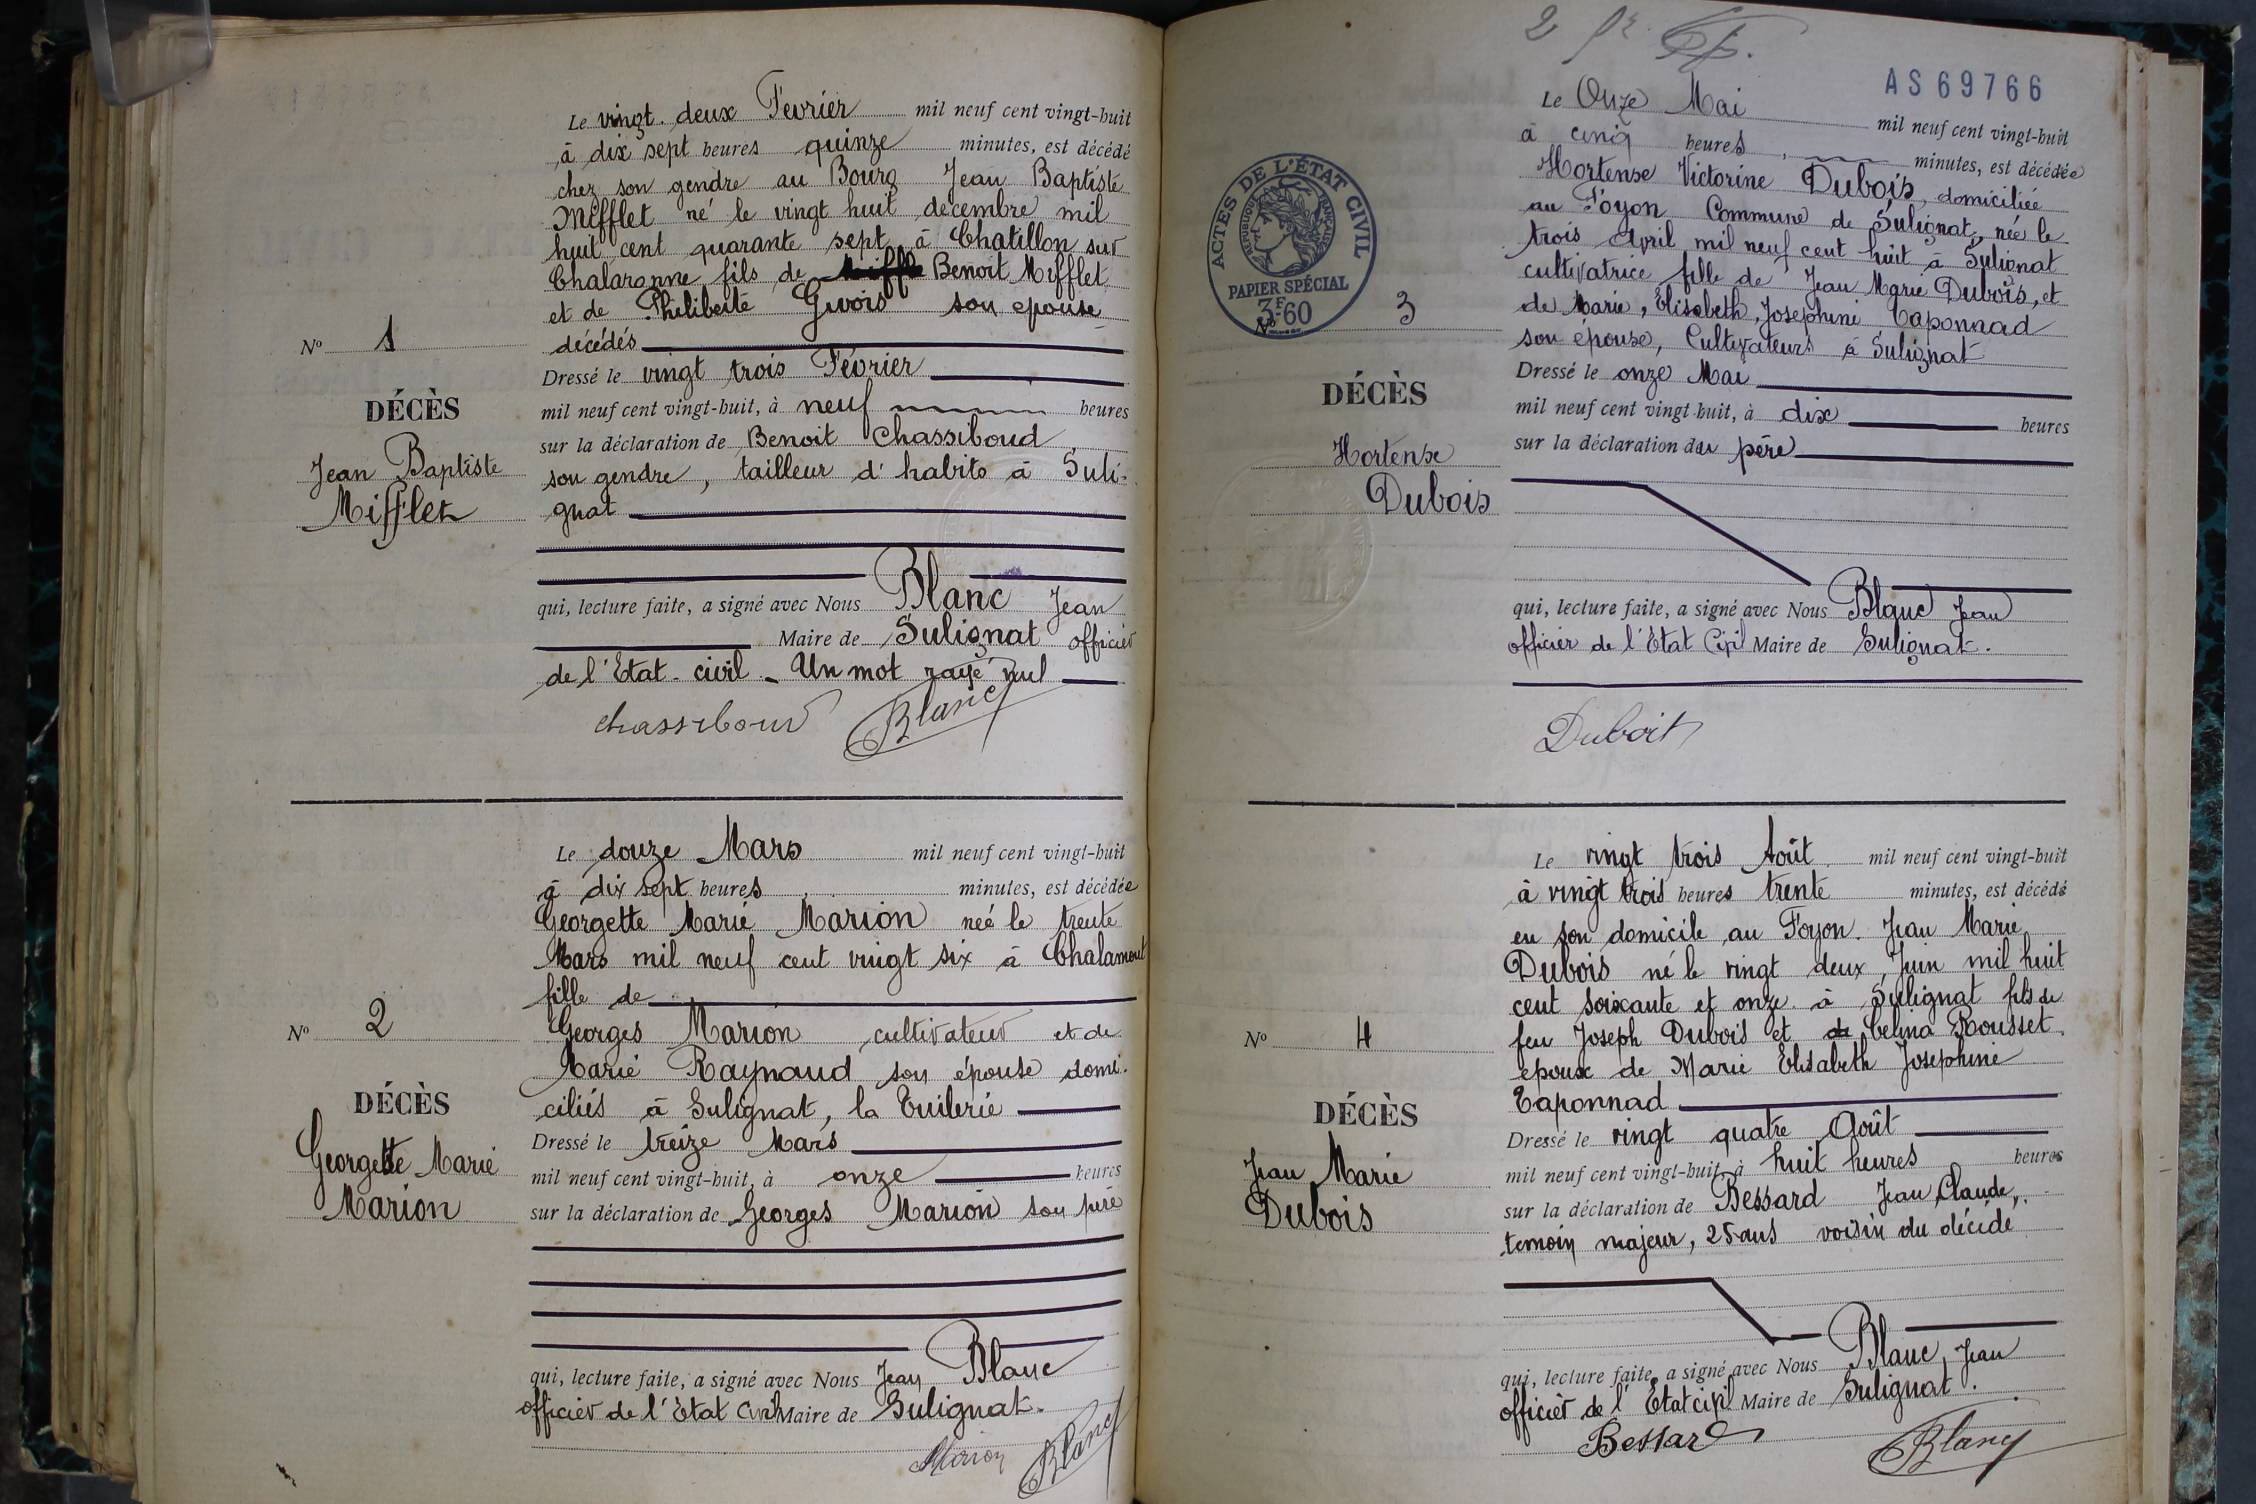 Le vingt deux Fevrier mil neuf cent vingt-huit
à dix sept heures quinze minutes, est décédé
chez son gendre au Bourg Jean Baptiste
Mifflet né le vingt huit decembre mil
huit cent quarante sept à Chatillon sur
Chalaronne fils de Benoit Mifflet
et de Philiberte Givois son epouse
décédés
Nº 1
DÉCÈS
Jean Baptiste
Mifflet
Dressé le vingt trois Février
mil neuf cent vingt-huit, à neuf heures
sur la déclaration de Benoit Chassiboud
son gendre, tailleur d'habits à Suli-
gnat
qui, lecture faite, a signé avec Nous Blanc Jean
Maire de Sulignat officier
de l'Etat-civil - Un mot rayé nul
Chassiboud Blanc
Le douze Mars mil neuf cent vingt-huit
à dix sept heures minutes, est décédée
Georgette Marie Marion née le trente
Mars mil neuf cent vingt six à Chalamont
fille de
Georges Marion cultivateur et de
Marie Raynaud son épouse domi-
ciliés à Sulignat, la Tuilerie
Nº 2
DÉCÈS
Georgette Marie
Marion
Dressé le treize Mars
mil neuf cent vingt-huit, à onze heures
sur la déclaration de Georges Marion son père
qui, lecture faite, a signé avec Nous Jean Blanc
officier de l'Etat Civil Maire de Sulignat.
Marion Blanc
2
AS69766
Le Onze Mai mil neuf cent vingt-huit
à cinq heures minutes, est décédée
Hortense Victorine Dubois, domiciliée
au Foyon Commune de Sulignat, née le
trois Avril mil neuf cent huit à Sulignat
cultivatrice fille de Jean Marie Dubois, et
de Marie, Elisabeth, Josephine Taponnad
son épouse, Cultivateurs à Sulignat
ACTES DE L'ÉTAT CIVIL
RÉPUBLIQUE FRANÇAISE
PAPIER SPÉCIAL
3F60
Nº 3
DÉCÈS
Hortense
Dubois
Dressé le onze Mai
mil neuf cent vingt-huit, à dix heures
sur la déclaration du père
qui, lecture faite, a signé avec Nous Blanc Jean
officier de l'Etat Civil Maire de Sulignat.
Duboit
Le vingt trois Août mil neuf cent vingt-huit
à vingt trois heures trente minutes, est décédé
en son domicile au Foyon. Jean Marie
Dubois né le vingt deux Juin mil huit
cent soixante et onze à Sulignat fils de
feu Joseph Dubois et de Celina Rousset
epoux de Marie Elisabeth Josephine
Taponnad
Nº 4
DÉCÈS
Jean Marie
Dubois
Dressé le vingt quatre Août
mil neuf cent vingt-huit, à huit heures heures
sur la déclaration de Bessard Jean Claude,
temoin majeur, 25 ans voisin du décédé
qui, lecture faite, a signé avec Nous Blanc, Jean
officier de l'Etat civil Maire de Sulignat.
Bessard Blanc